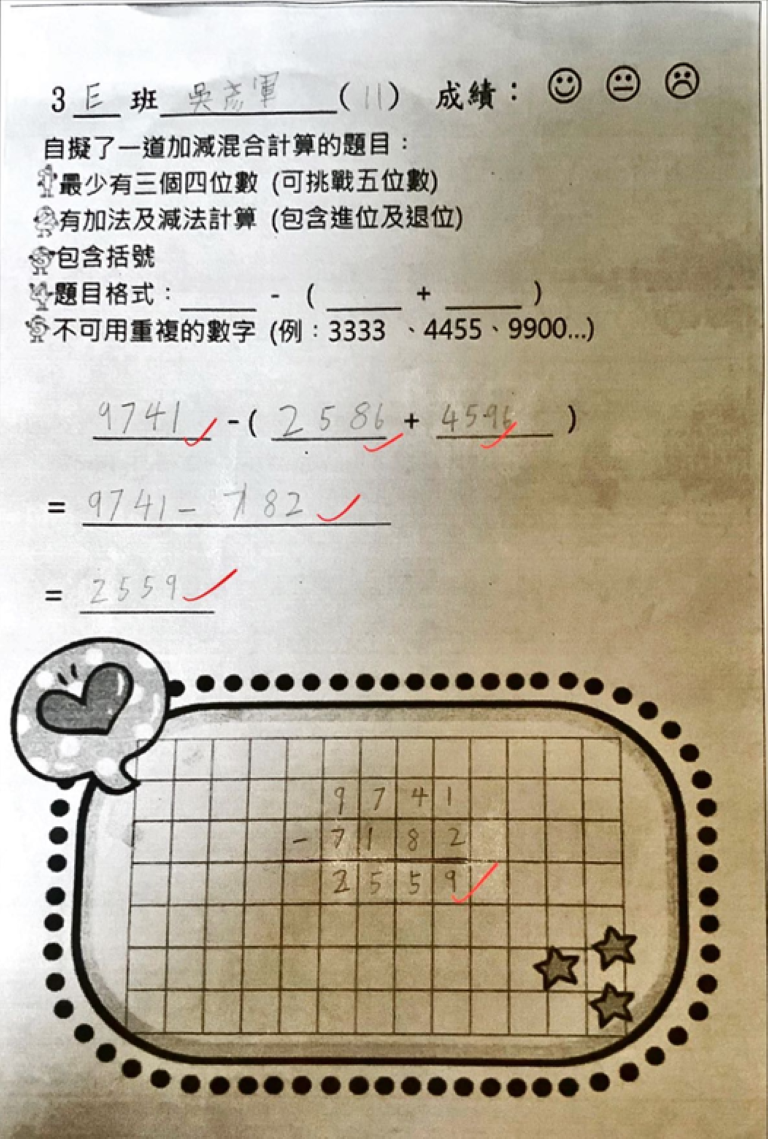 3 E 班 吳彥軍 (11) 成績：
自擬了一道加減混合計算的題目：
最少有三個四位數 (可挑戰五位數)
有加法及減法計算 (包含進位及退位)
包含括號
題目格式：______ - ( ______ + ______ )
不可用重複的數字 (例：3333、4455、9900...)
9741 - ( 2586 + 4596 )
= 9741 - 7182
= 2559
9741
- 7182
2559